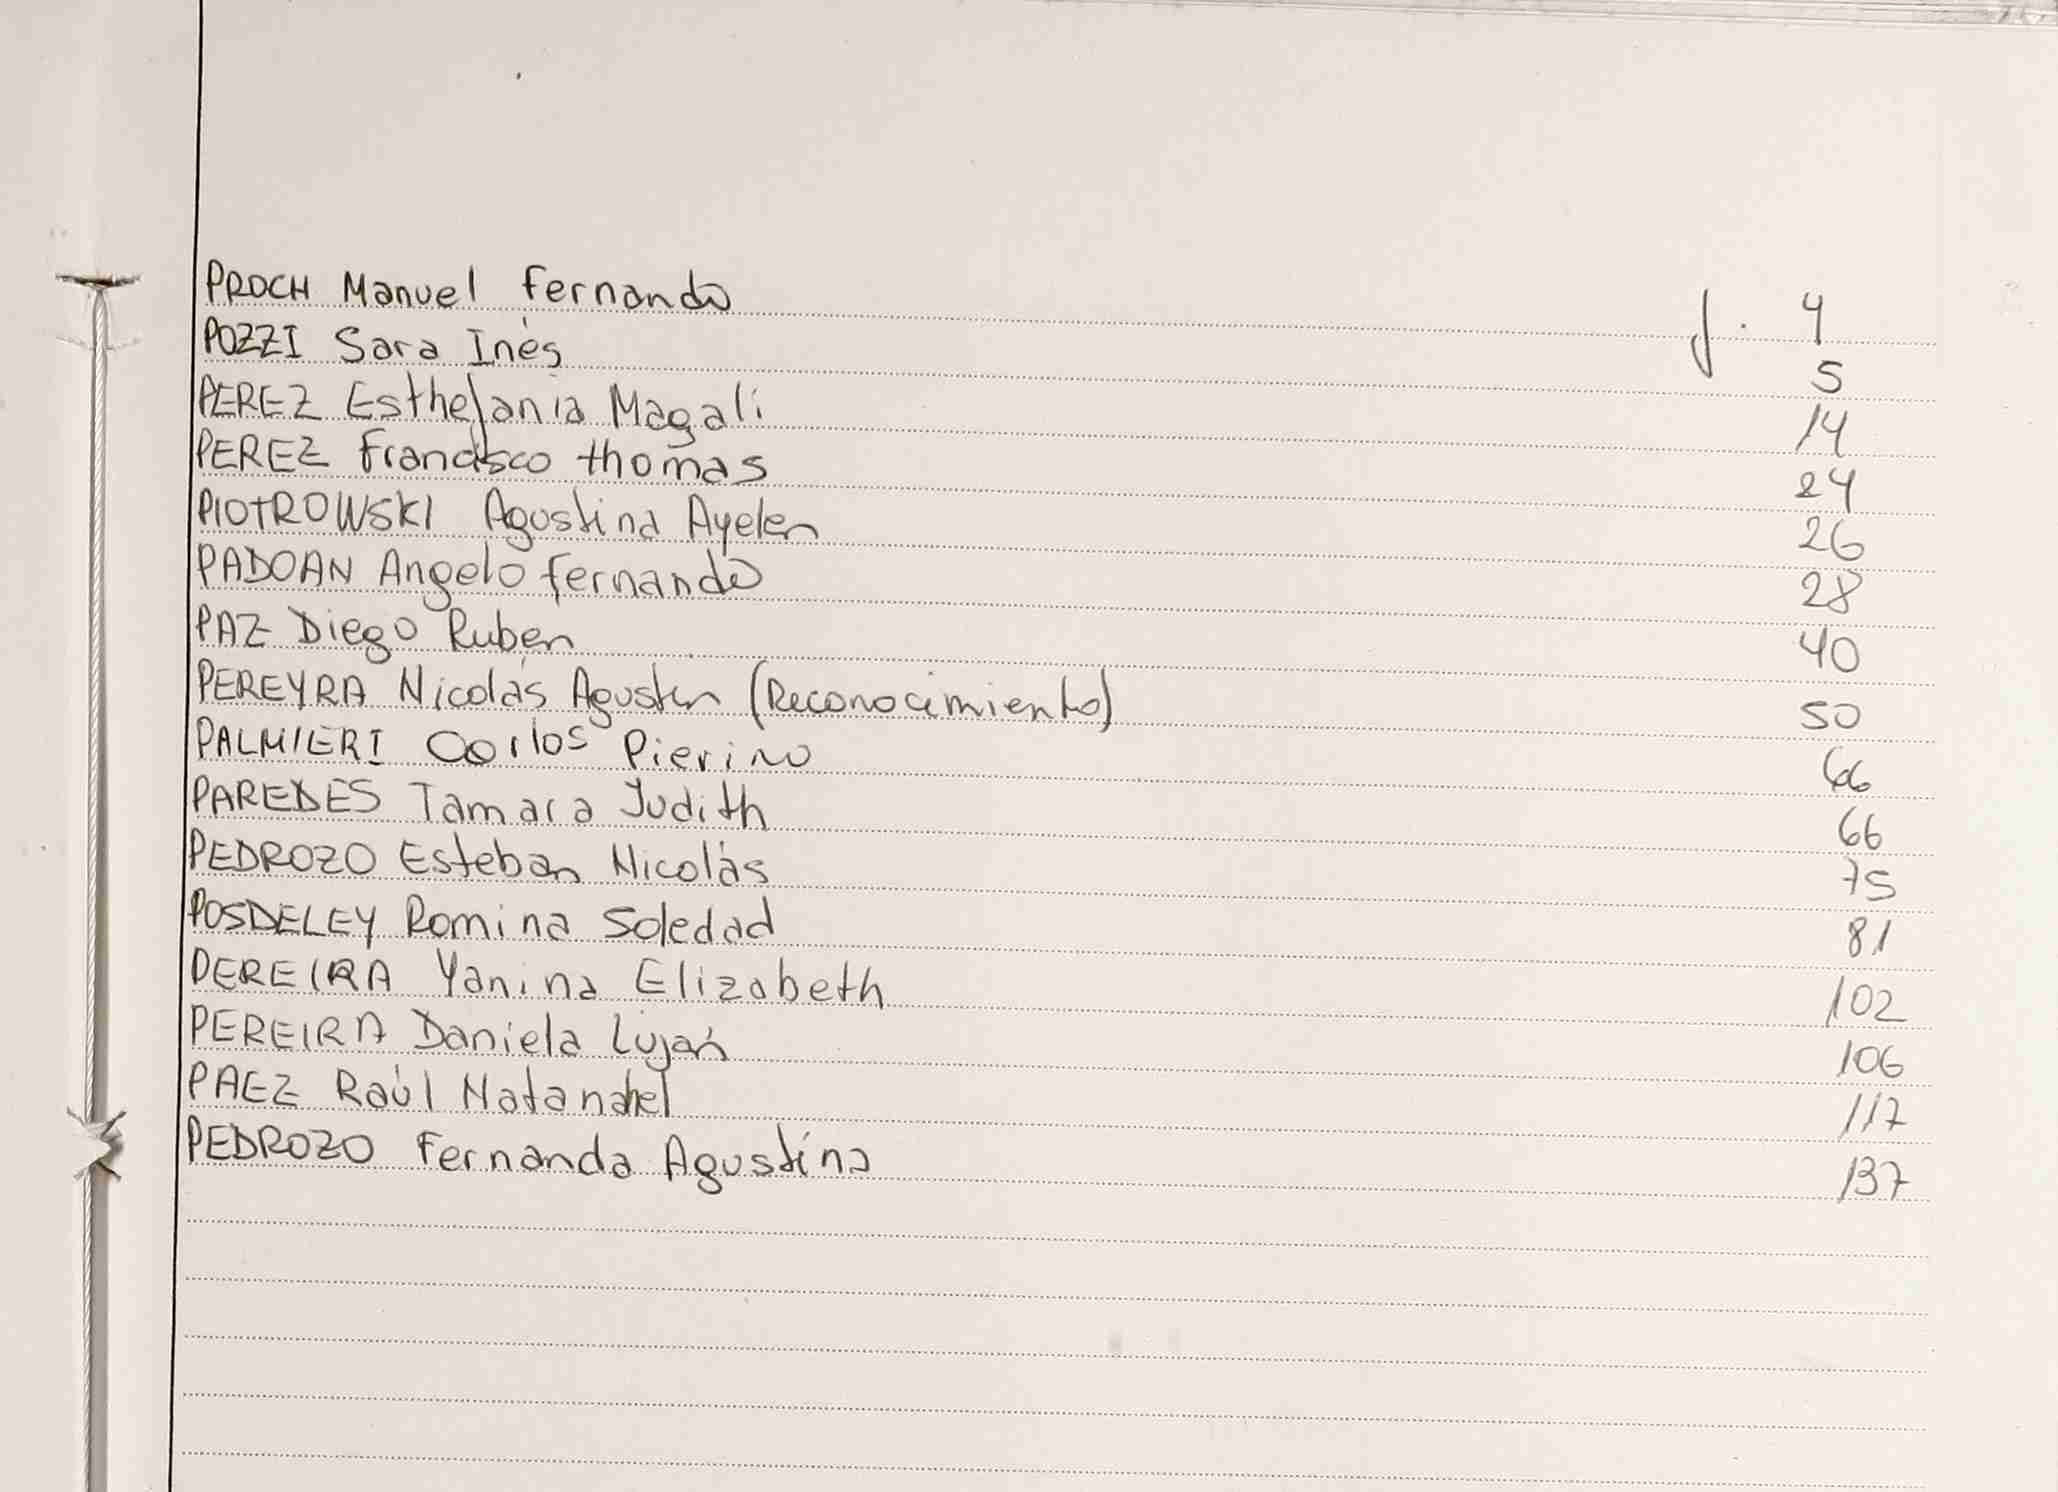 PROCH Manuel Fernando f. 4
POZZI Sara Inés 5
PEREZ Esthefania Magali 14
PEREZ Francisco thomas 24
PIOTROWSKI Agustina Ayelen 26
PADOAN Angelo Fernando 28
PAZ Diego Ruben 40
PEREYRA Nicolás Agustin (Reconocimiento) 50
PALMIERI Carlos Pierino 66
PAREDES Tamara Judith 66
PEDROZO Esteban Nicolás 75
POSDELEY Romina Soledad 81
PEREIRA Yanina Elizabeth 102
PEREIRA Daniela Luján 106
PAEZ Raúl Natanahel 117
PEDROZO Fernanda Agustina 137